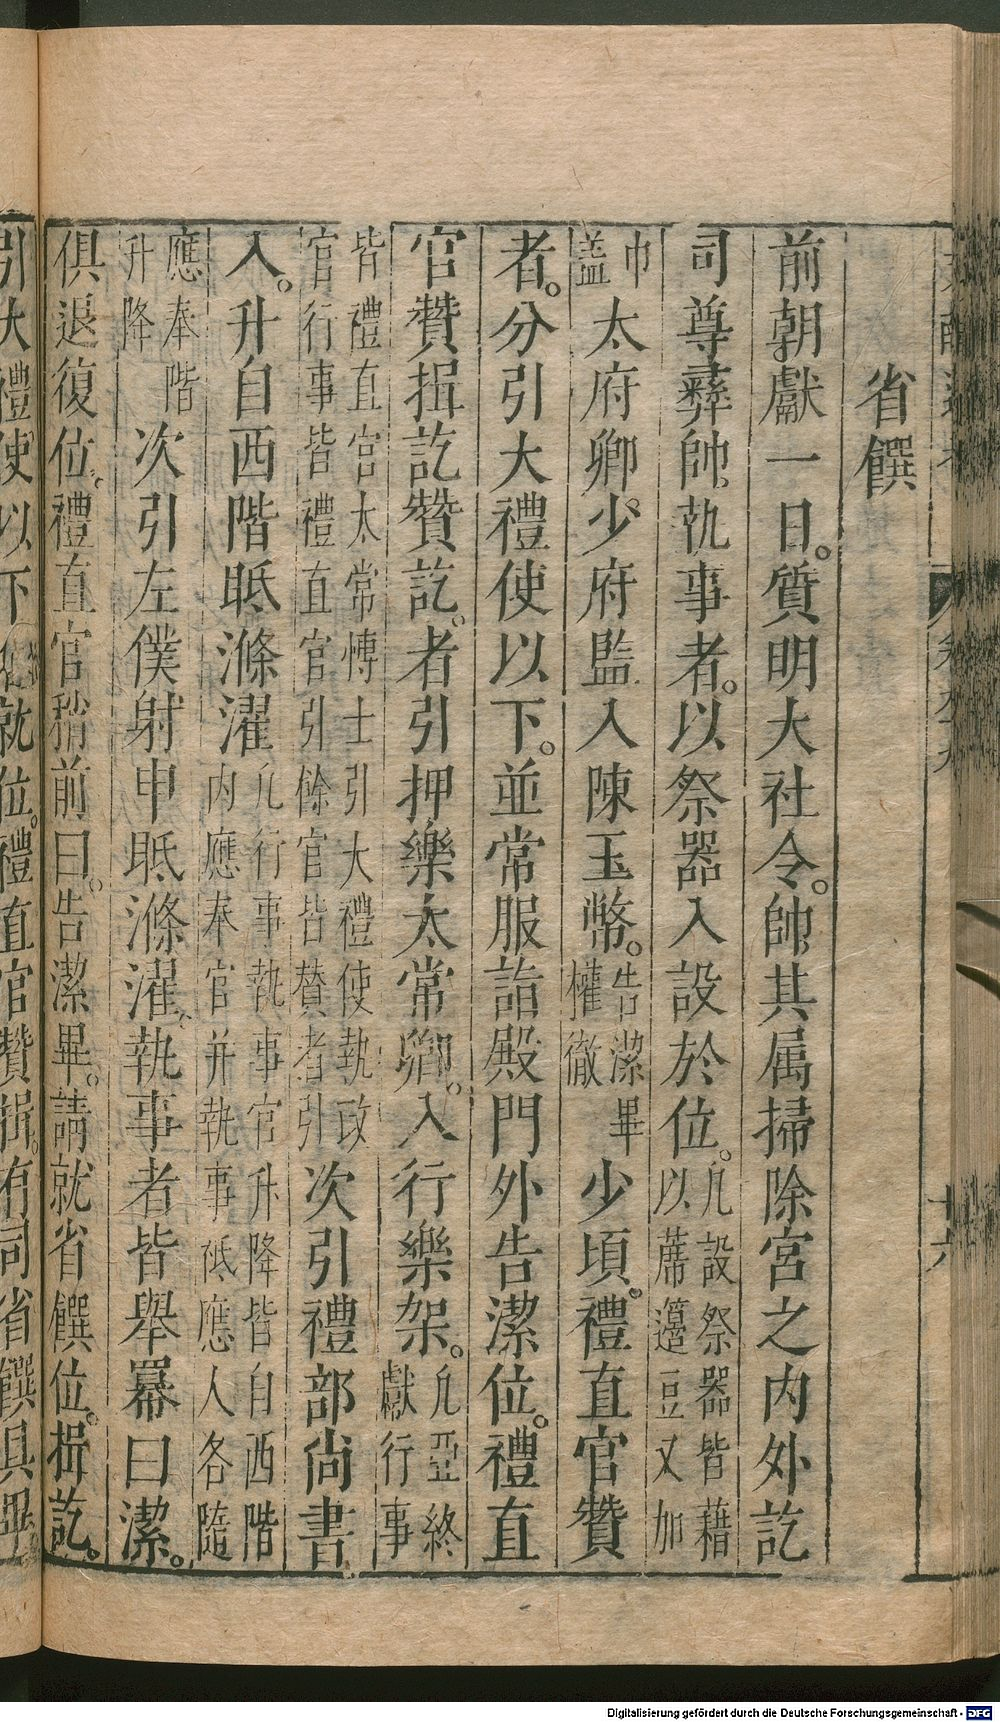 省饌
前朝獻一日。質明大社令。帥其属掃除宮之内外訖
司尊彝帥執事者。以祭器入設於位。凡設祭器皆藉以蓆籩豆又加
巾蓋太府卿少府監入陳玉幣。告潔畢權徹少頃。禮直官贊
者。分引大禮使以下。並常服詣殿門外告潔位。禮直
官贊揖訖贊訖。者引押樂太常卿。入行樂架。凡亞終獻行事
皆禮直官太常博士引大禮使執政官行事皆禮直官引餘官皆贊者引次引禮部尚書
入。升自西階眡滌濯凡行事執事官升降皆自西階内應奉官并執事祗應人各隨
應奉階升降次引左僕射申眡滌濯執事者皆舉羃曰潔。
俱退復位。禮直官稍前曰。告潔畢。請就省饌位。揖訖。
引大禮使以下就位。禮直官贊揖。有司省饌具畢
十六
Digitalisierung gefördert durch die Deutsche Forschungsgemeinschaft - DFG